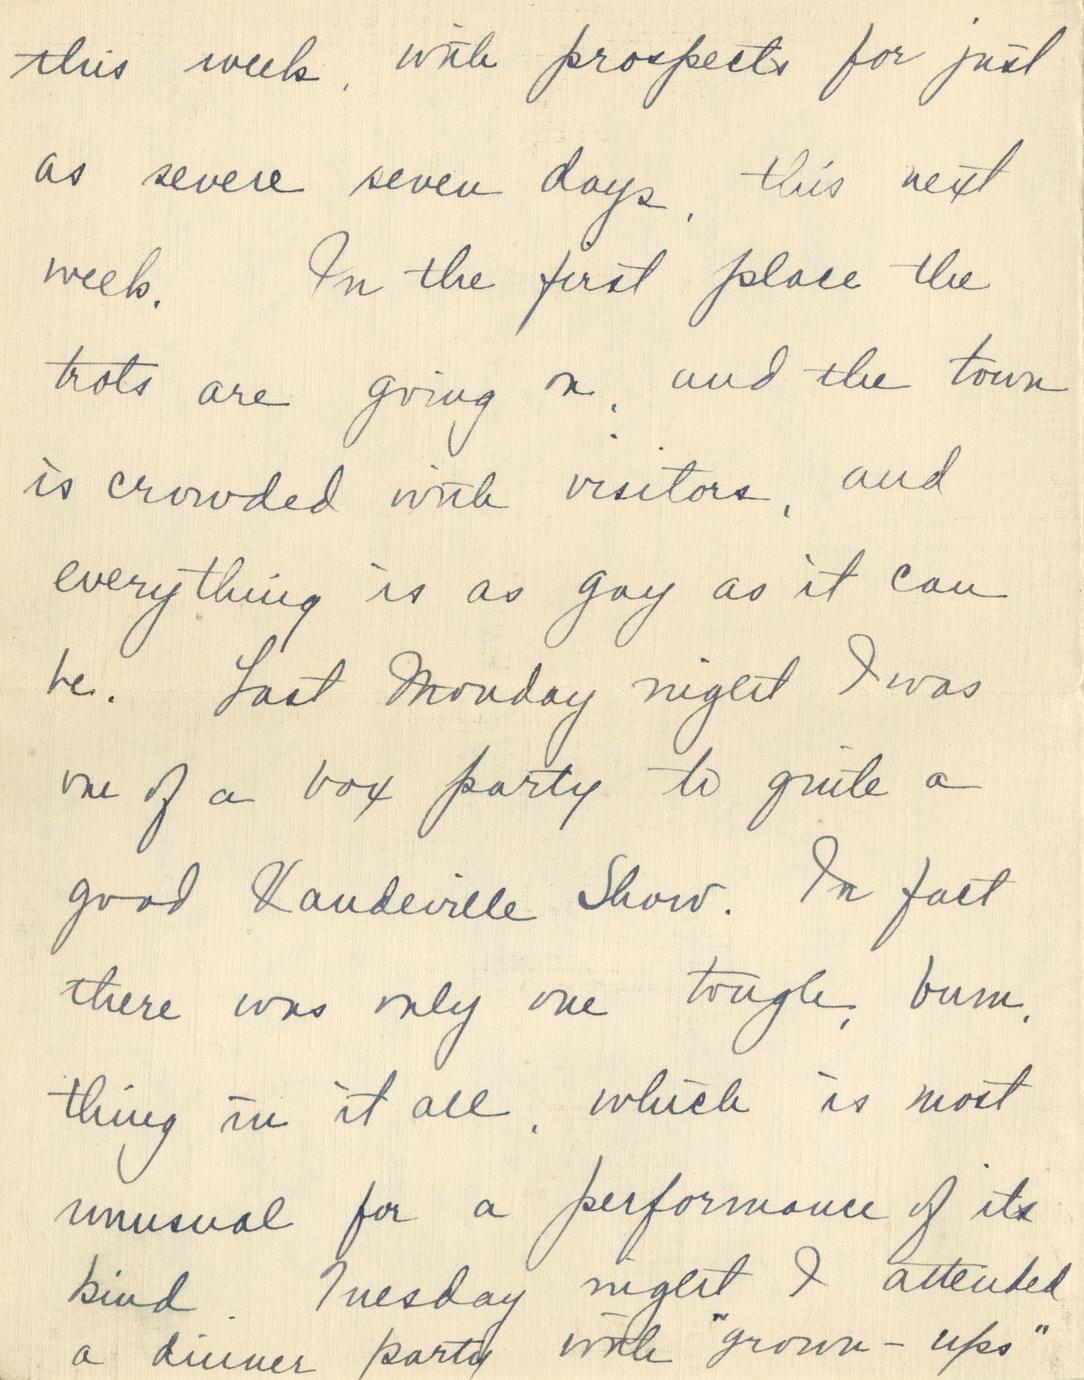 this week, with prospects for just
as severe seven days, this next
week. In the first place the
trots are going on, and the town
is crowded with visitors, and
everything is as gay as it can
be. Last Monday night I was
one of a box party to quite a
good Vaudeville Show. In fact
there was only one tough, bum,
thing in it all, which is most
unusual for a performance of its
kind Tuesday night I attended
a dinner party with "grown-ups"